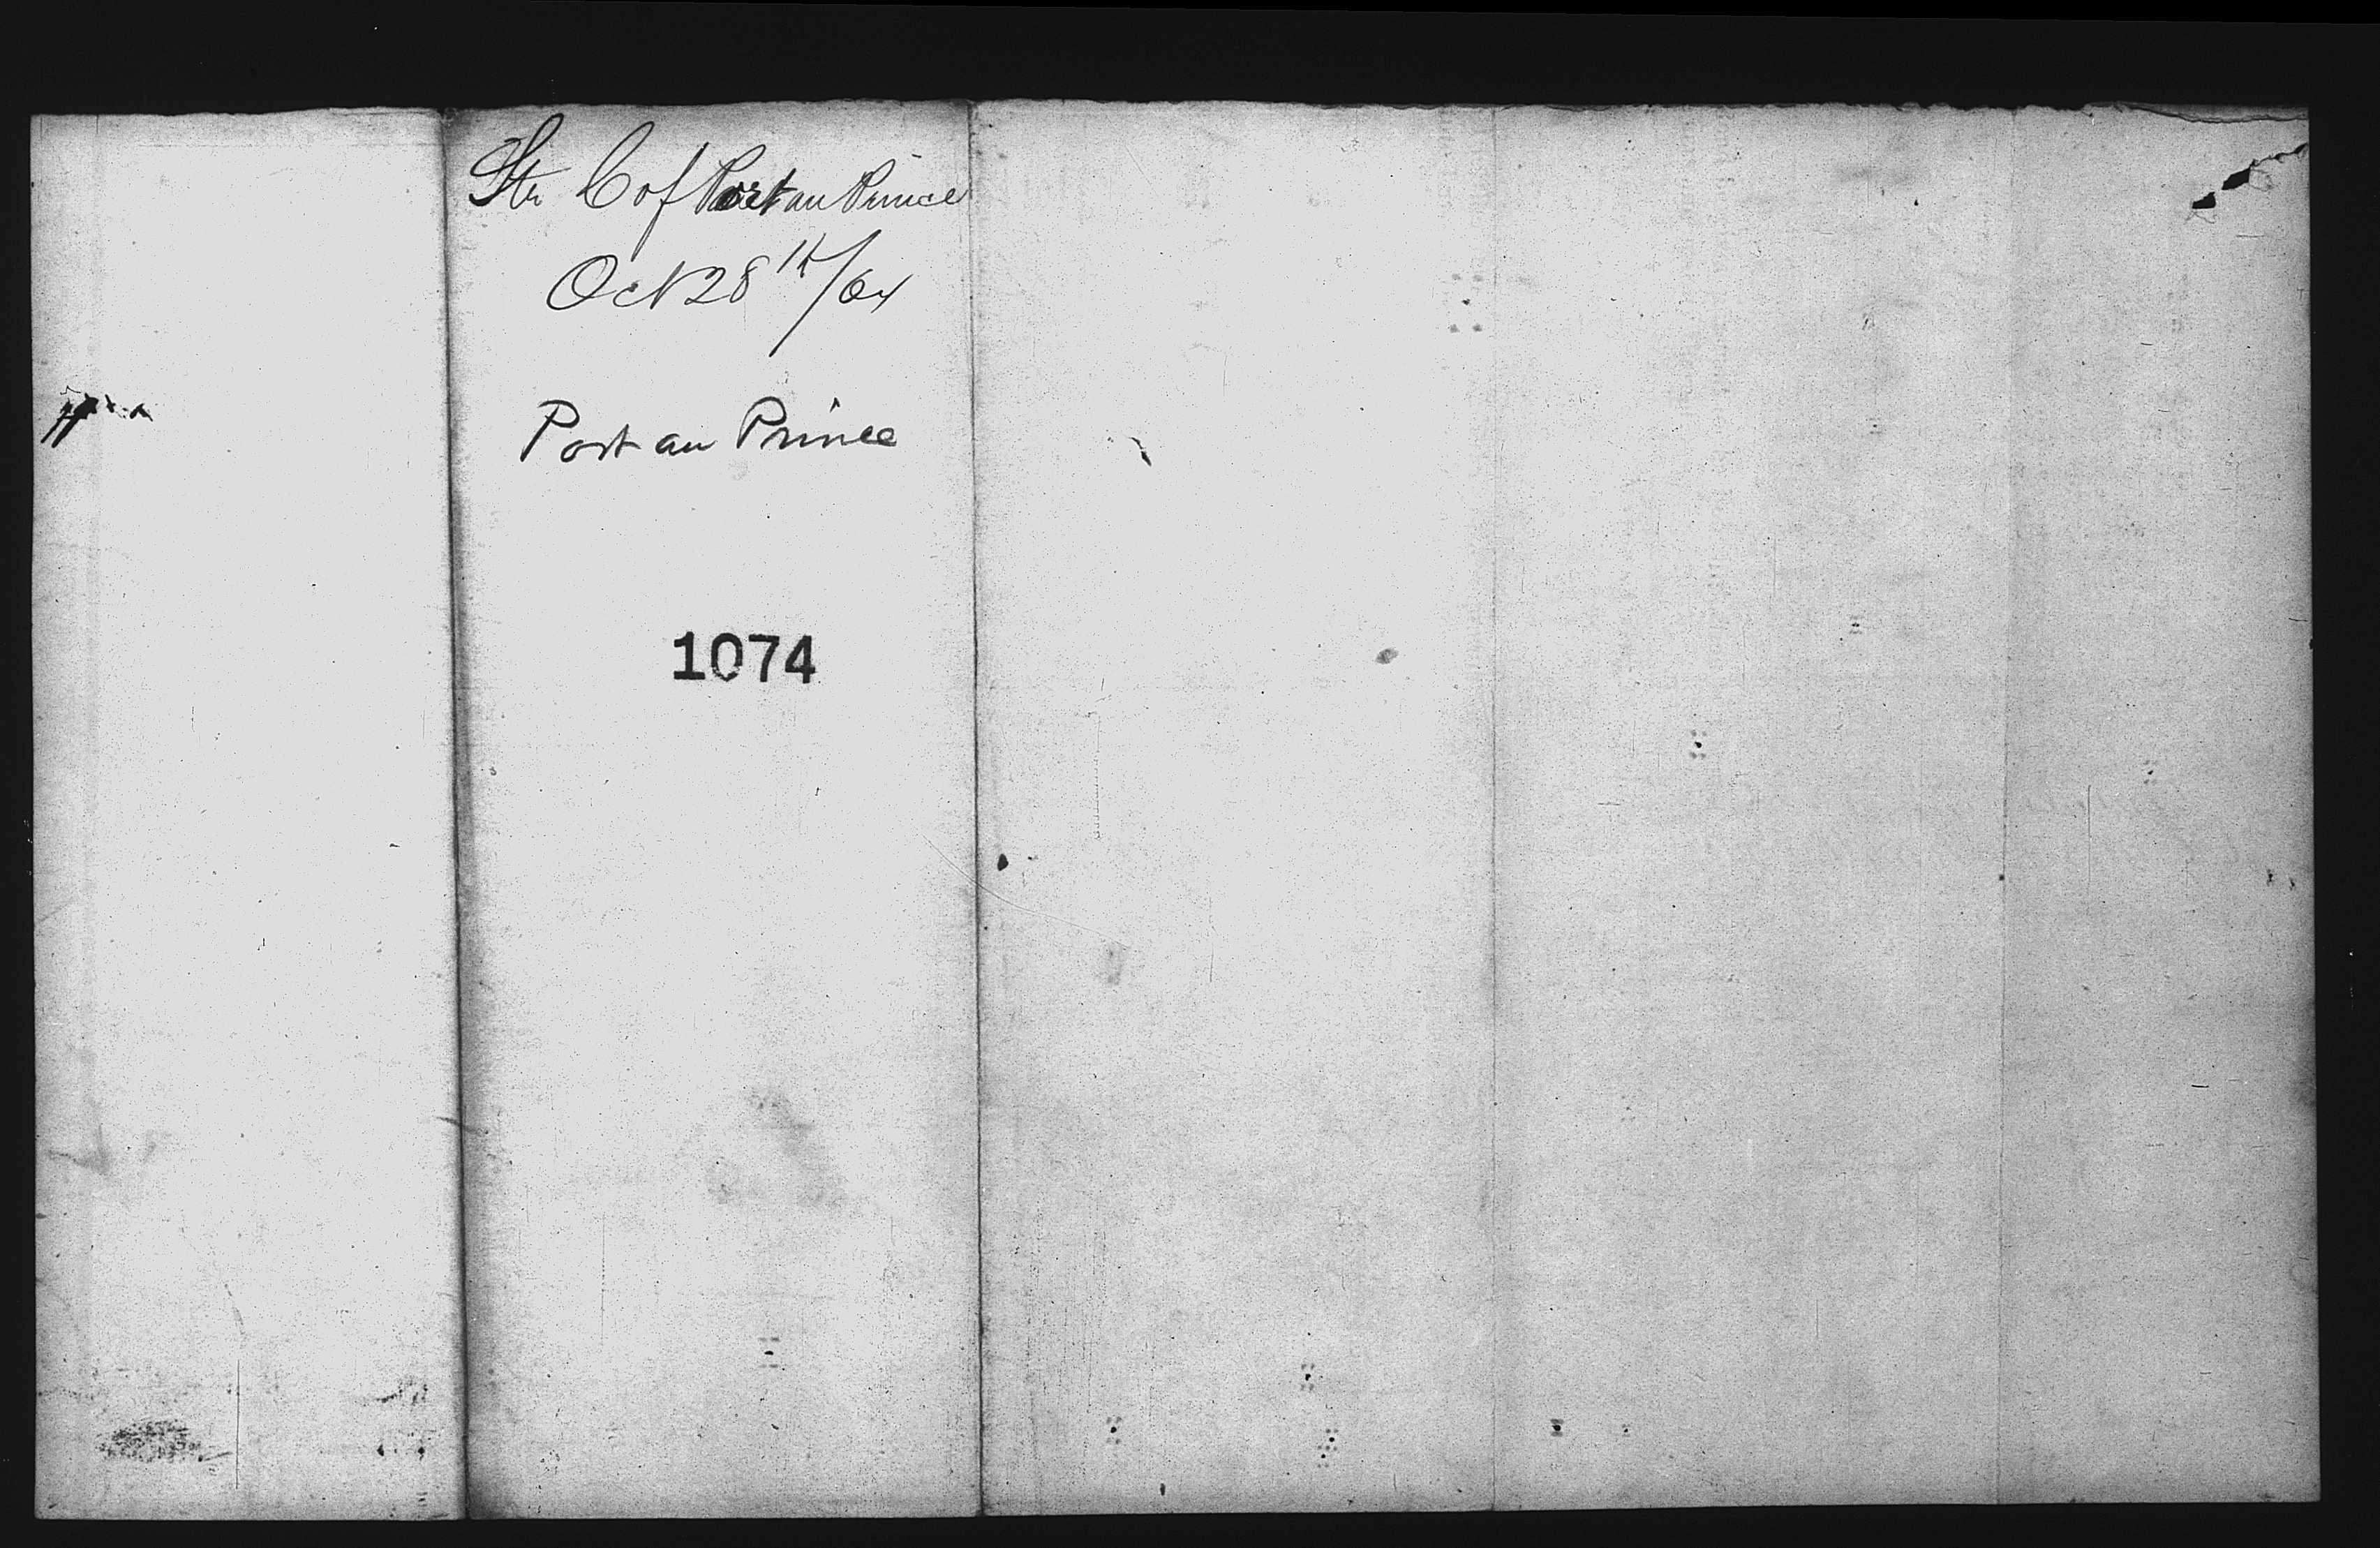 Str C of Port au Prince
Oct 28th/64
Port au Prince
1074